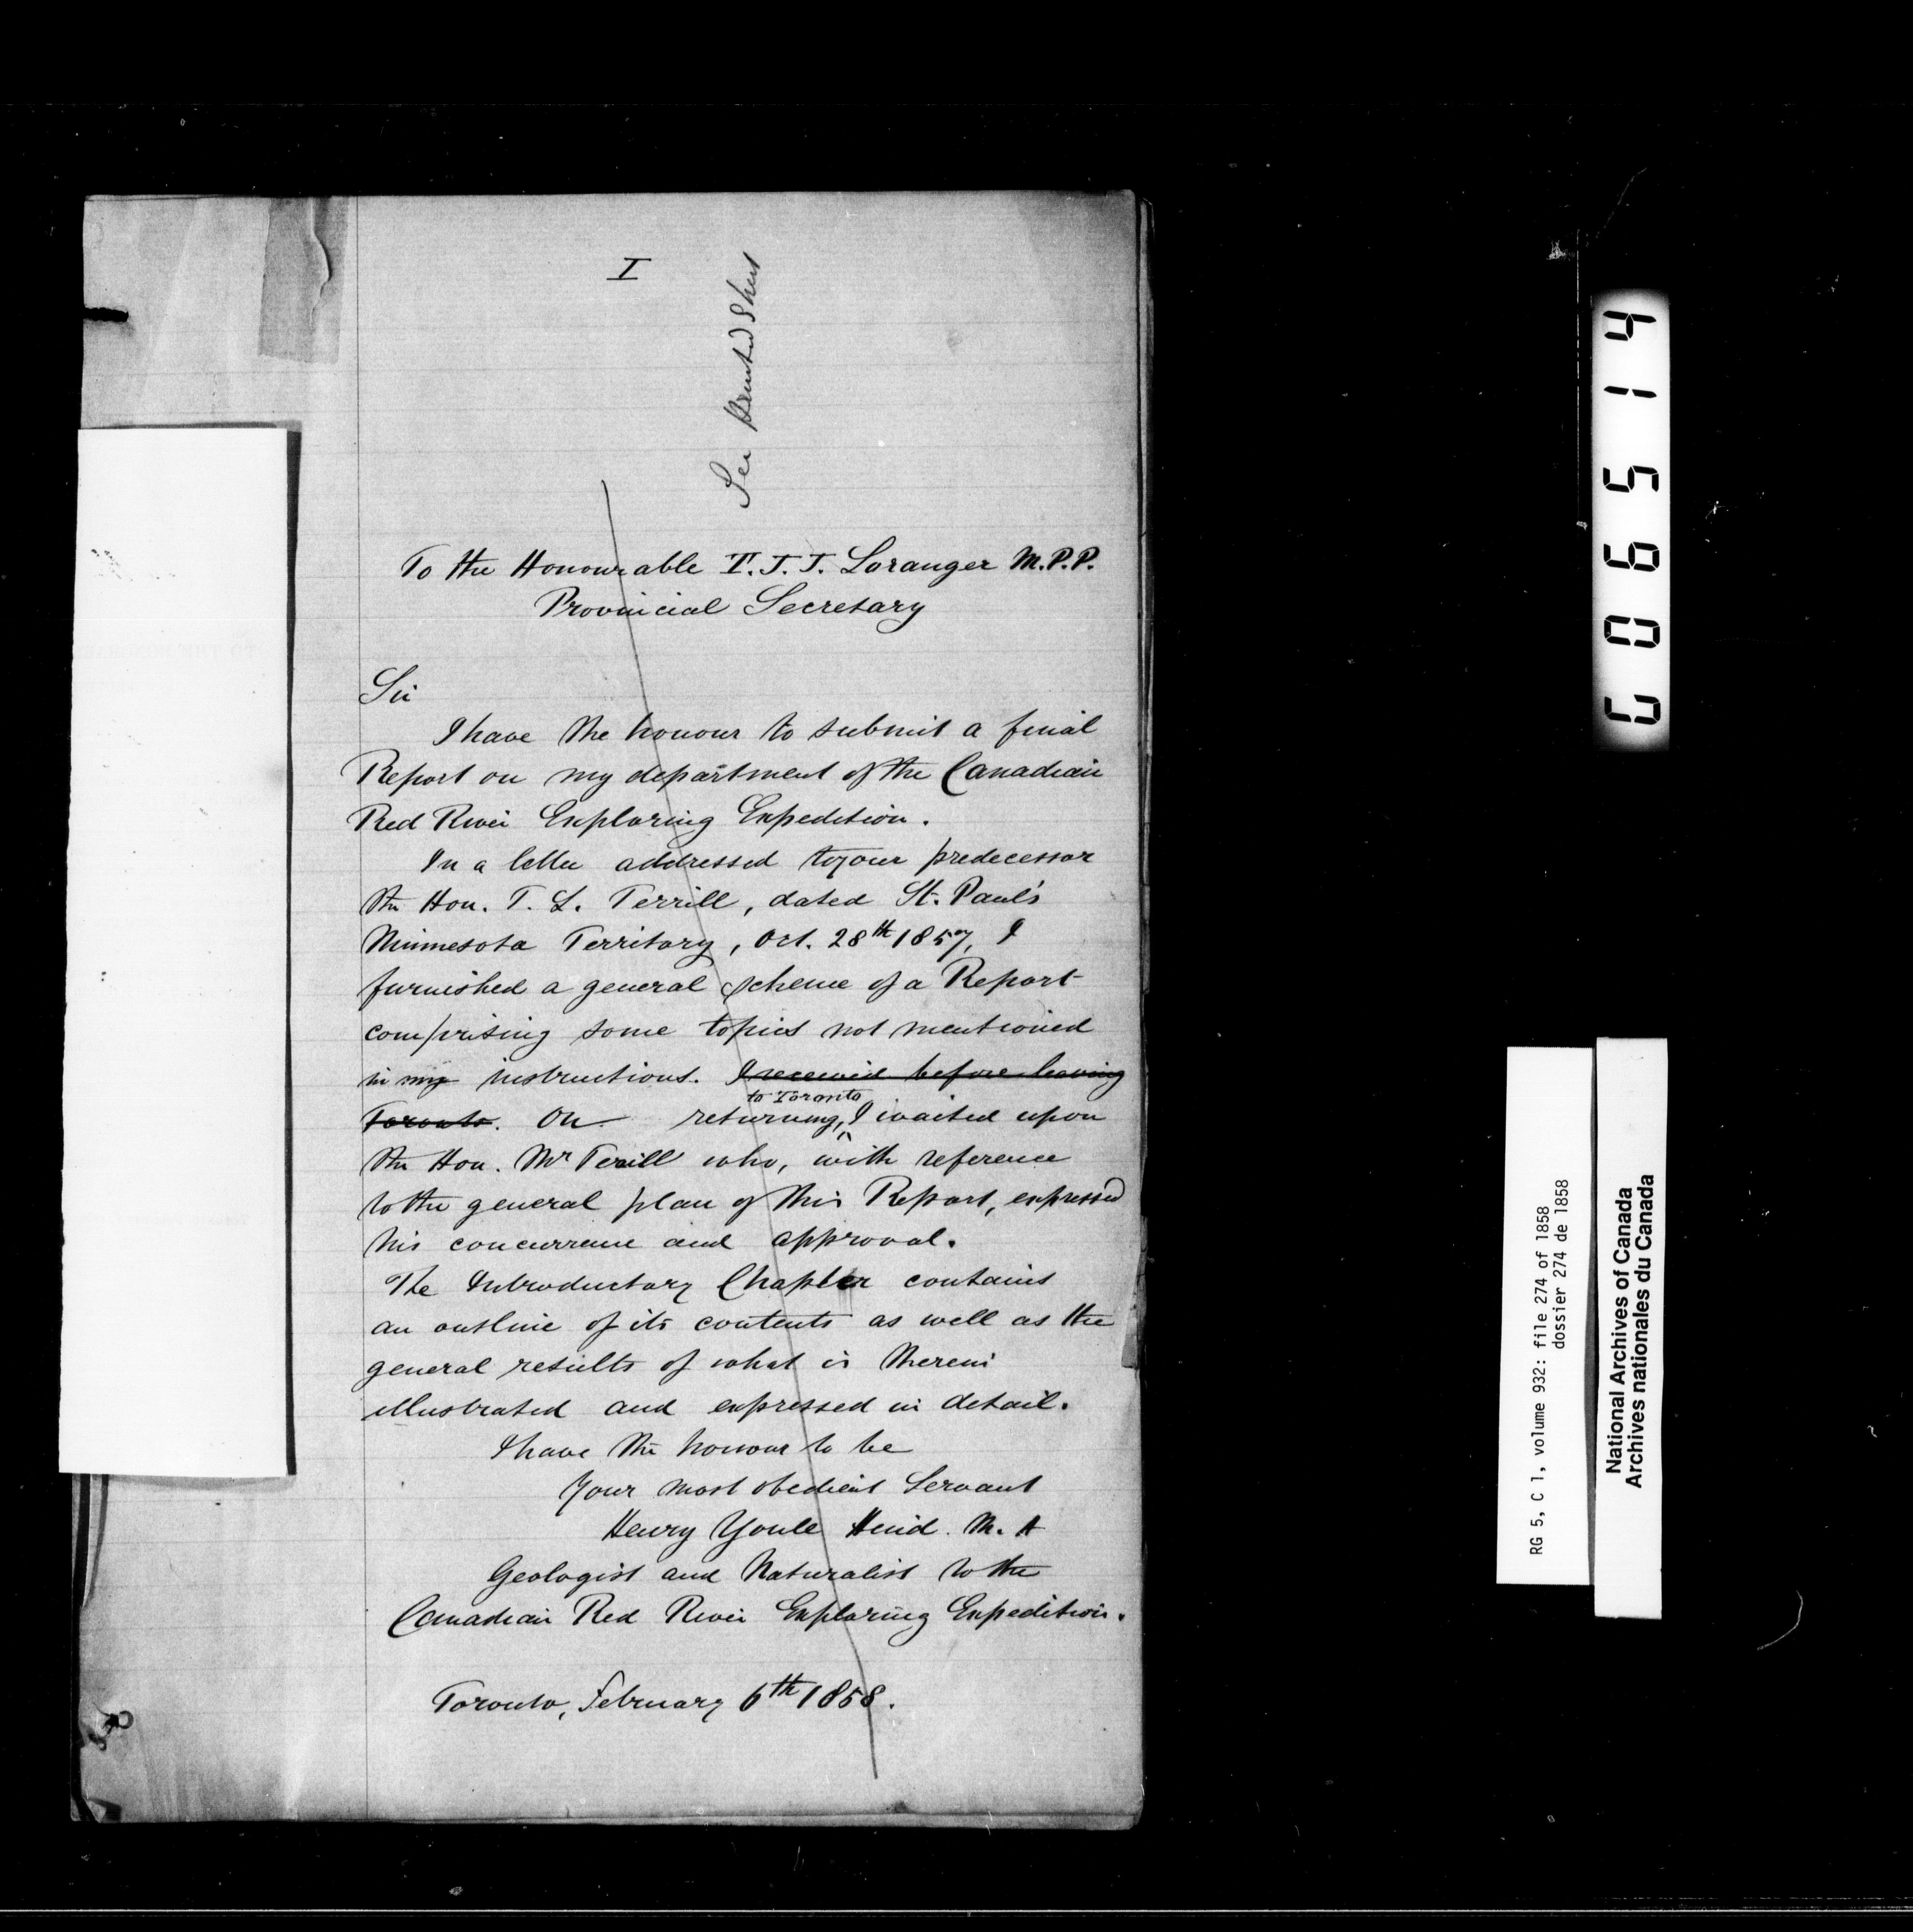 I
See Printed Sheet
To the Honourable T. J. J. Loranger M.P.P.
Provincial Secretary
Sir
I have the honour to submit a final
Report on my department of the Canadian
Red River Exploring Expedition.
In a letter addressed to your predecessor
the Hon. T. L. Terrill, dated St. Paul's
Minnesota Territory, Oct. 28th 1857, I
furnished a general scheme of a Report
comprising some topics not mentioned
in my instructions. I received before leaving
to Toronto
Toronto. On returning, I waited upon
the Hon. Mr Terill who, with reference
to the general plan of this Report, expressed
his concurrence and approval.
The Introductory Chapter contains
an outline of its contents as well as the
general results of what is therein
illustrated and expressed in detail.
I have the honour to be
Your most obedient Servant
Henry Youle Hind. M. A
Geologist and Naturalist to the
Canadian Red River Exploring Expedition.
Toronto, February 6th 1858.
006514
RG 5, C 1, volume 932: file 274 of 1858
dossier 274 de 1858
National Archives of Canada
Archives nationales du Canada